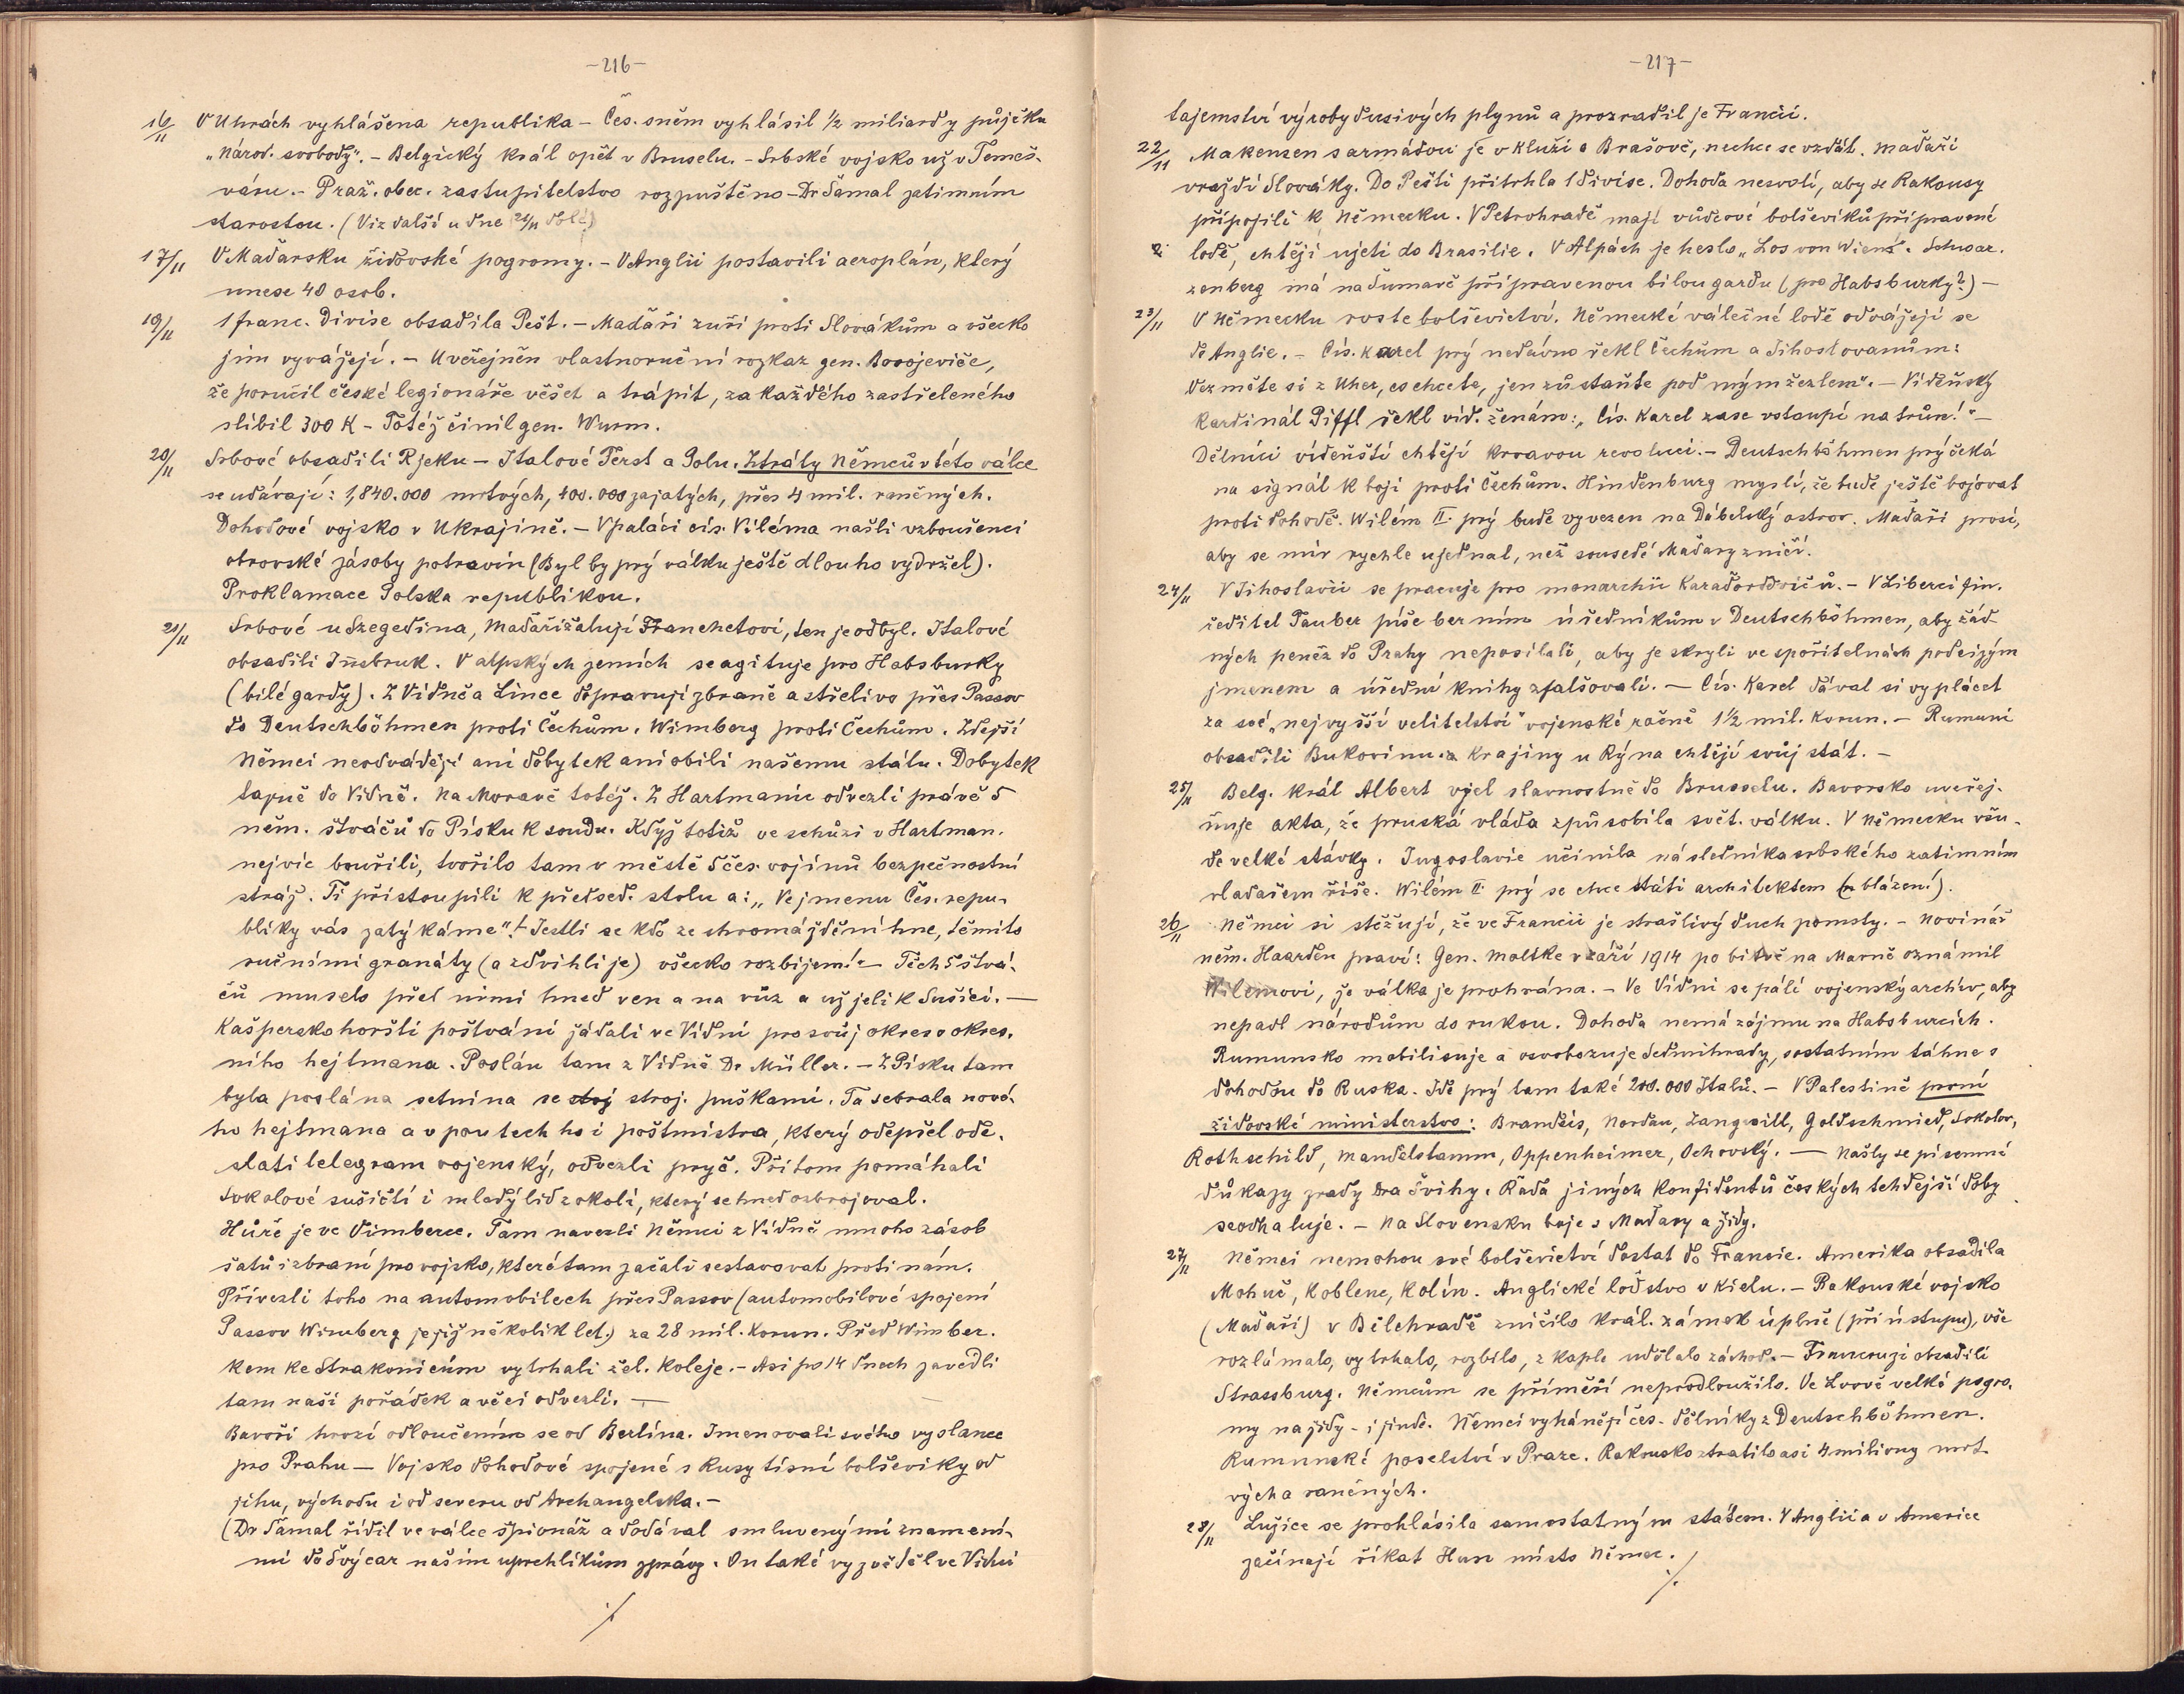 -216-
16/11 V Uhrách vyhlášena republika - Čes. sněm vyhlásil 1/2 miliardy půjčku
„Národ. svobody“. - Belgický král opět v Bruselu. - Srbské vojsko už v Temeš-
váru. - Praž. obec. zastupitelstvo rozpuštěno - Dr Šámal zatimním
starostou. (Viz další u dne 21/11 dole)
17/11 V Maďarsku židovské pogromy. - V Anglii postavili aeroplán, který
unese 40 osob.
19/11 1 franc. divise obsadila Pešť. - Maďaři zuří proti Slovákům a všecko
jim vyvážejí. - Uveřejněn vlastnoruční rozkaz gen. Borojeviče,
že poručil české legionáře věšet a trápit, za každého zastřeleného
slíbil 300 K - Totéž činil gen. Wurm.
20/11 Srbové obsadili Rjeku - Italové Terst a Polu. Ztráty Němců v této válce
se udávají: 1,840.000 mrtvých, 400.000 zajatých, přes 4 mil. raněných.
Dohodové vojsko v Ukrajině. - V paláci cís. Viléma našli vzbouřenci
obrovské zásoby potravin (Byl by prý válku ještě dlouho vydržel).
Proklamace Polska republikou.
21/11 Srbové u Szegedina, Maďaři žalují Franchetovi, ten je odbyl. Italové
obsadili Insbruk. V alpských zemích se agituje pro Habsburky
(bílé gardy). Z Vídně a Lince dopravují zbraně a střelivo přes Passov
do Deutschböhmen proti Čechům. Wimberg proti Čechům. Zdejší
Němci neodvádějí ani dobytek ani obilí našemu státu. Dobytek
tajně do Vídně. Na Moravě totéž. Z Hartmanic odvezli právě 5
něm. štváčů do Písku k soudu. Když totiž ve schůzi v Hartman.
nejvíc bouřili, tvořilo tam v městě 5 čes. vojínů bezpečnostní
stráž. Ti přistoupili k předsed. stolu a: „Ve jmenu Čes. repu-
bliky vás zatýkáme“! - Jestli se kdo ze shromáždění hne, těmito
ručními granáty (a zdvihli je) všecko rozbijem! - Těch 5 štvá-
čů muselo před nimi hned ven a na vůz a už jeli k Sušici. -
Kašperskohorští poštváni žádali ve Vídni pro svůj okres okres.
ního hejtmana. Poslán tam z Vídně Dr Müller. - Z Písku tam
byla poslána setnina se stroj stroj. puškami. Ta sebrala nové-
ho hejtmana a v poutech ho i poštmistra, který odepřel ode-
slati telegram vojenský, odvezli pryč. Při tom pomáhali
Sokolové sušičtí i mladý lid z okolí, který se hned ozbrojoval.
Hůře je ve Vimberce. Tam navezli Němci z Vídně mnoho zásob
šatů i zbraní pro vojsko, které tam začali sestavovat proti nám.
Přivezli toho na automobilech přes Passov (automobilové spojení
Passov Wimberg je již několik let.) za 28 mil. korun. Před Wimber.
kem ke Strakonicům vytrhali žel. koleje. - Asi po 14 dnech zavedli
tam naši pořádek a věci odvezli. -
Bavoři hrozí odloučením se od Berlína. Jmenovali svého vyslance
pro Prahu - Vojsko dohodové spojené s Rusy tísní bolševiky od
jihu, východu i od severu od Archangelska. -
(Dr Šámal řídil ve válce špionáž a dodával smluvenými znamení-
mi do Švýcar našim uprchlíkům zprávy. On také vyzvěděl ve Vídni
./.
-217-
tajemství výroby dusivých plynů a prozradil je Francii.
22/11 Makensen s armádou je v Kluži a Brašově, nechce se vzdát. Maďaři
vraždí Slováky. Do Pešti přitrhla 1 divise. Dohoda nesvolí, aby se Rakousy
připojili k Německu. V Petrohradě mají vůdcové bolševiků připravené
lodě, chtějí ujeti do Brasilie. V Alpách je heslo „Los von Wien“. Schwar.
zenberg má na Šumavě připravenou bílou gardu (pro Habsburky?) -
23/11 V Německu roste bolševictví. Německé válečné lodě odvážejí se
do Anglie. - Cís. Karel prý nedávno řekl Čechům a Jihoslovanům:
Vezměte si z Uher, co chcete, jen zůstaňte pod mým žezlem“. - Vídeňský
kardinál Piffl řekl víd. ženám: „Cís. Karel zase vstoupí na trůn!“ -
Dělníci vídeňští chtějí krvavou revoluci. - Deutschböhmen prý čeká
na signál k boji proti Čechům. Hindenburg myslí, že bude ještě bojovat
proti dohodě. Wilém II. prý bude vyvezen na Ďábelský ostrov. Maďaři prosí,
aby se mír rychle ujednal, než sousedé Maďary zničí.
24/11 V Jihoslavii se pracuje pro monarchii Karadordovičů. - V Liberci fin.
ředitel Tauber píše berním úředníkům v Deutschböhmen, aby žád
ných peněz do Prahy neposílali, aby je skryli ve spořitelnách pod cizým
jmenem a úřední knihy zfalšovali. - Cís. Karel dával si vyplácet
za své „nejvyšší velitelství“ vojenské ročně 1 1/2 mil. korun. - Rumuni
obsadili Bukovinu. a Krajiny u Rýna chtějí svůj stát. -
25/11 Belg. král Albert vjel slavnostně do Brusselu. Bavorsko uveřej-
ňuje akta, že pruská vláda způsobila svět. válku. V Německu všu-
de velké stávky. Jugoslavie učinila následníka srbského zatimním
vladařem říše. Wilém II. prý se chce státi architektem (blázen!).
26/11 Němci si stěžují, že ve Francii je strašlivý duch pomsty. - Novinář
něm. Haarden praví: Gen. Moltke v září 1914 po bitvě na Marně oznámil
Wilémovi, že válka je prohrána. - Ve Vídni se pálí vojenský archiv, aby
nepadl národům do rukou. Dohoda nemá zájmu na Habsburcích.
Rumunsko mobilisuje a osvobozuje Sedmihrady, s ostatním táhne s
dohodou do Ruska. Jde prý tam také 200.000 Italů. - V Palestině první
židovské ministerstvo: Brandeis, Nordau, Zangwill, Goldschmied, Sokolov,
Rothschild, Mandelstamm, Oppenheimer, Ochovský. - Našly se písemné
důkazy zrady Dra Švihy. Řada jiných konfidentů českých tehdejší doby
se odhaluje. - Na Slovensku boje s Maďary a židy.
27/11 Němci nemohou své bolševictví dostat do Francie. Amerika obsadila
Mohuč, Koblenc, Kolín. Anglické loďstvo v Kielu. - Rakouské vojsko
(Maďaři) v Bělehradě zničilo král. zámek úplně (při ústupu), vše
rozlámalo, vytrhalo, rozbilo, z kaple udělalo záchod. - Francouzi obsadili
Strassburg. Němcům se příměří neprodloužilo. Ve Lvově velké pogro-
my na židy - i jinde. Němci vyhánějí čes. dělníky z Deutschböhmen.
Rumunské poselství v Praze. Rakousko ztratilo asi 4 miliony mrt-
vých a raněných.
28/11 Lužice se prohlásila samostatným státem. V Anglii a v Americe
začínají říkat Hun místo Němec.
./.